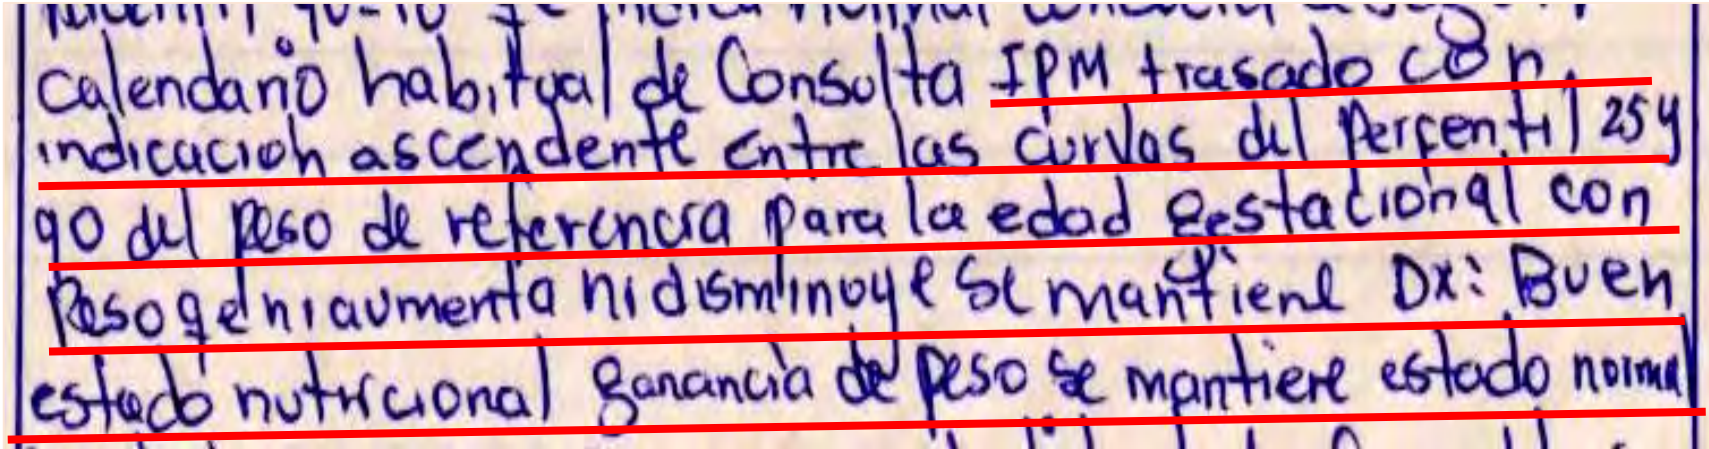 calendario habitual de Consulta IPM trasado con
indicacion ascendente entre las curvas del Percentil 25 y
90 del peso de referencia para la edad gestacional con
Peso qe ni aumenta ni disminuye se mantiene Dx: Buen
estado nutricional ganancia de peso se mantiere estado normal